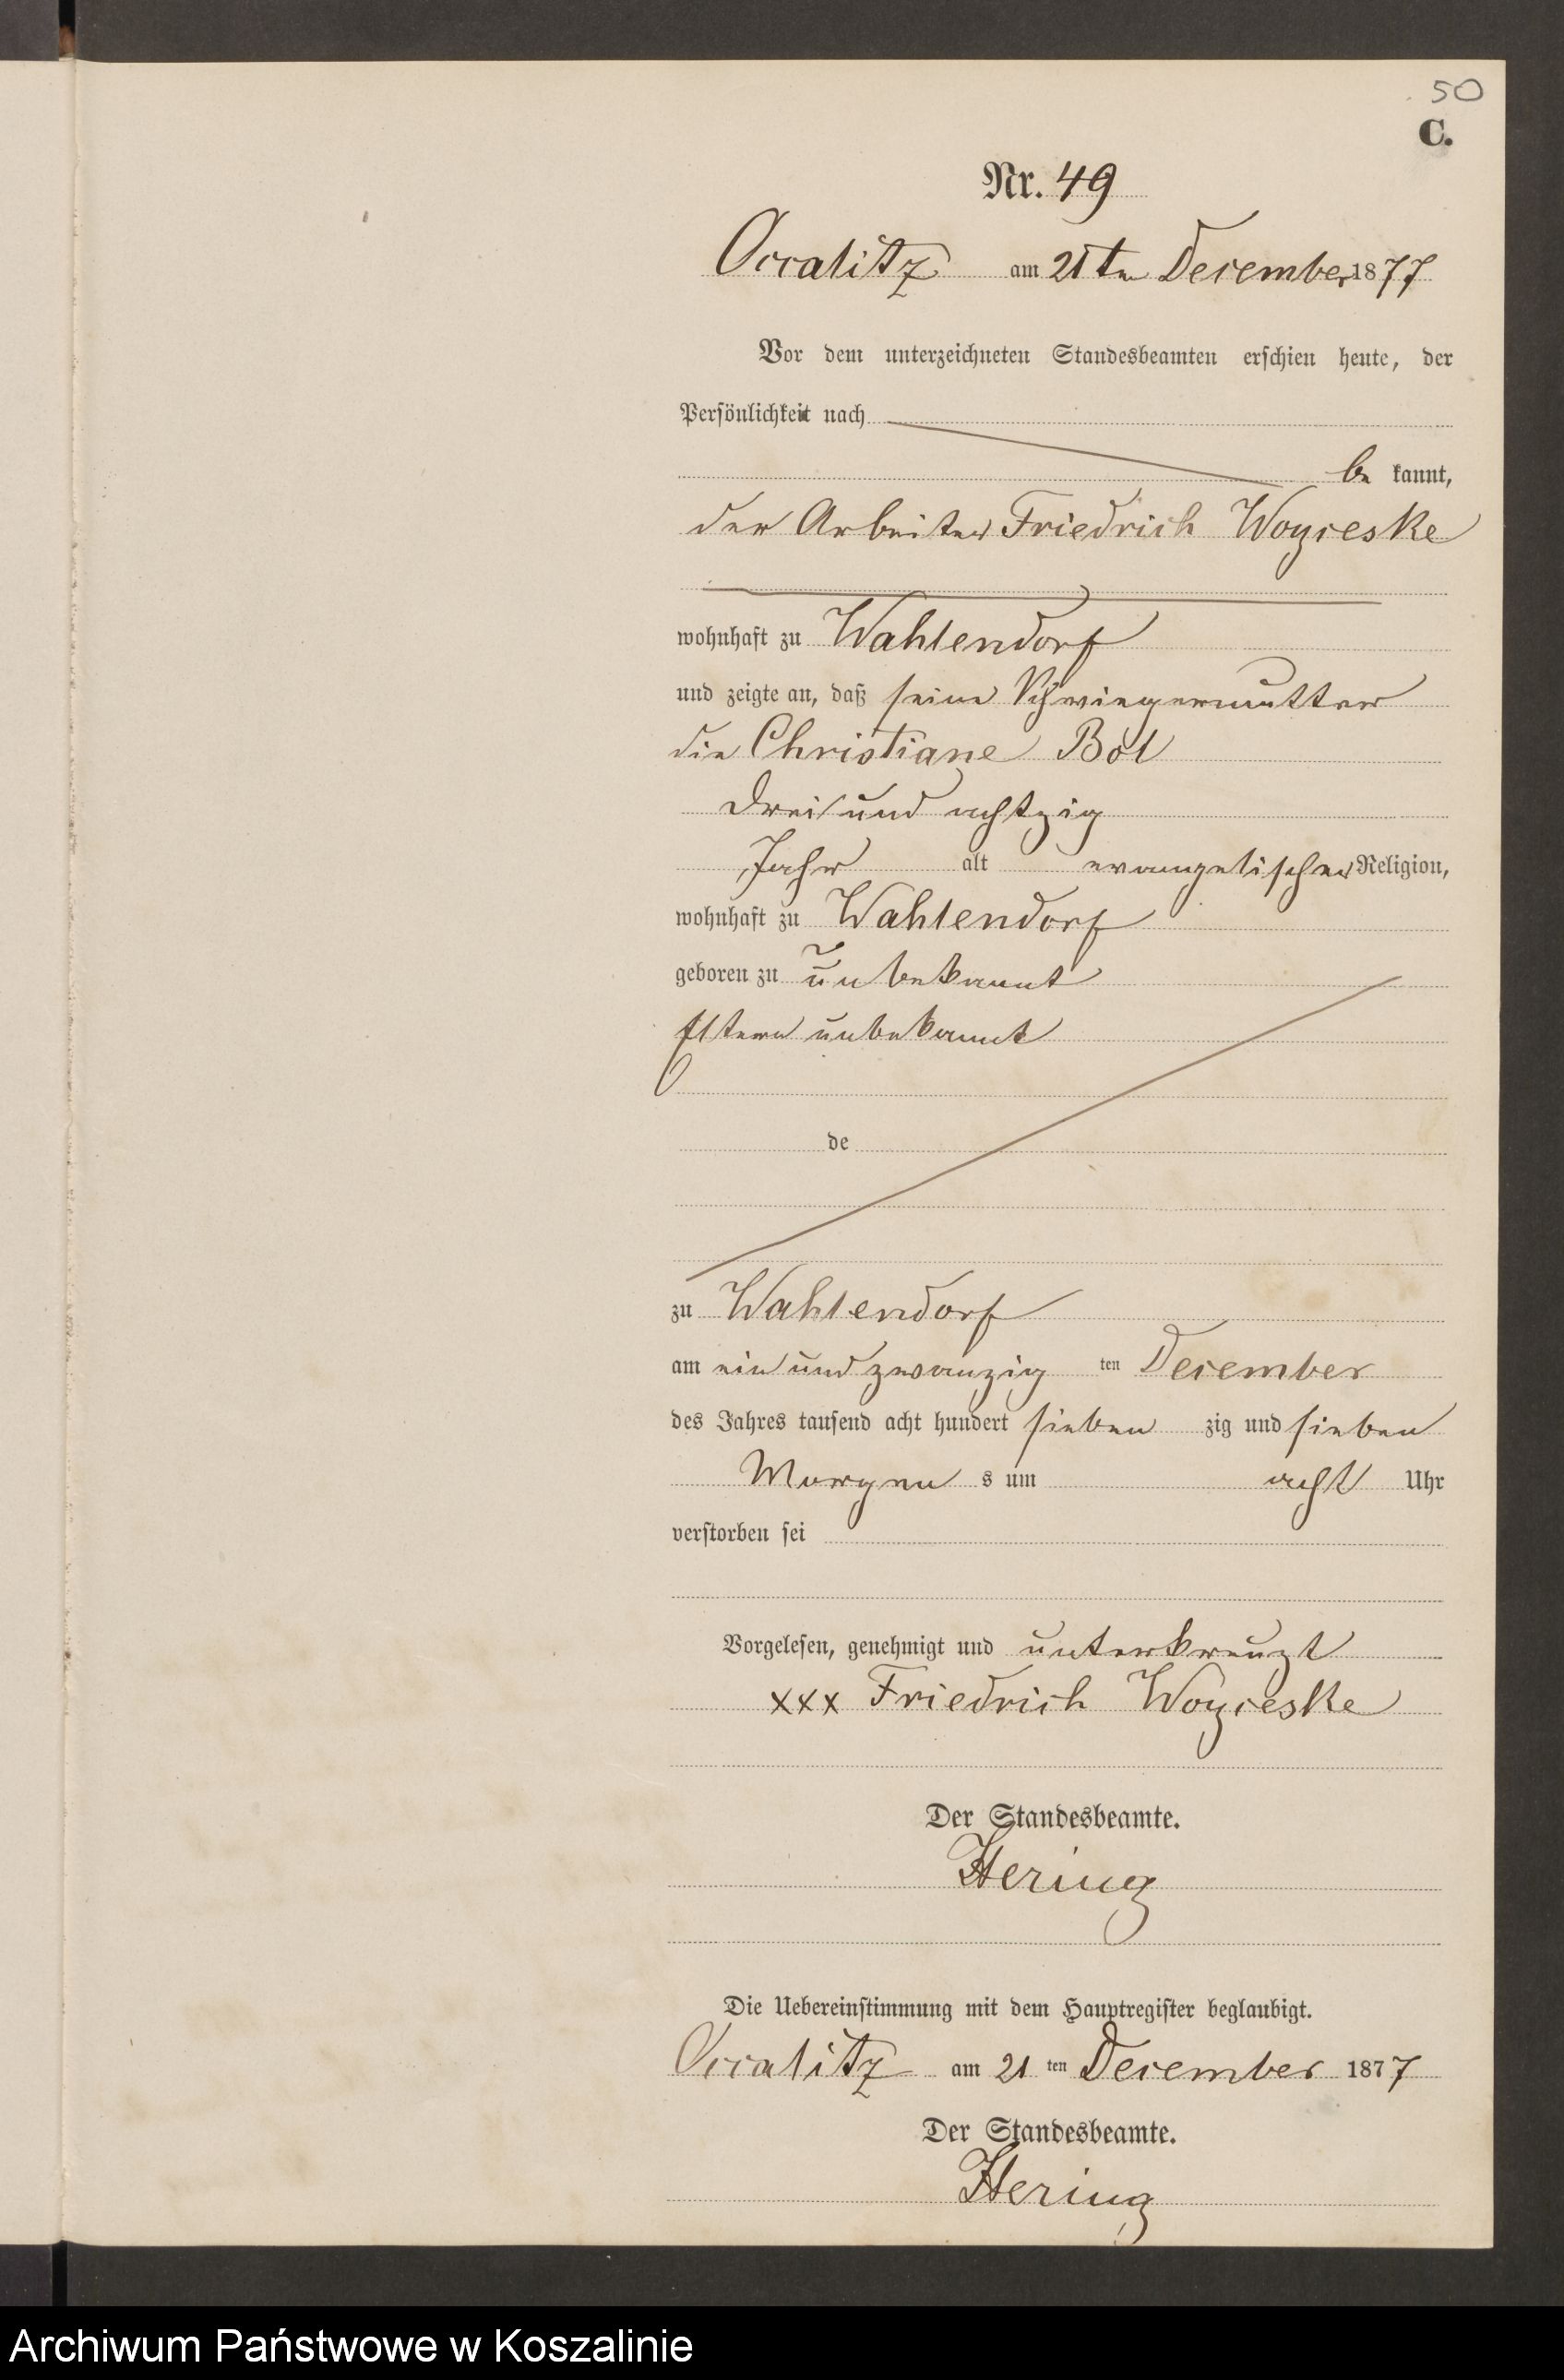 50
C.
Nr. 49
Occalitz am 21ten December 1877
Vor dem unterzeichneten Standesbeamten erschien heute, der
Persönlichkeit nach
be kannt,
der Arbeiter Friedrich Woycieske
wohnhaft zu Wahlendorf
und zeigte an, daß seine Schwiegermutter
die Christiane Bol
drei und achtzig
Jahr alt evangelischer Religion,
wohnhaft zu Wahlendorf
geboren zu unbekannt
Eltern unbekannt
de
zu Wahlendorf
am ein und zwanzig ten December
des Jahres tausend acht hundert sieben zig und sieben
Morgen s um acht Uhr
verstorben sei
Vorgelesen, genehmigt und unterkreuzt
xxx Friedrich Woycieske
Der Standesbeamte.
Hering
Die Uebereinstimmung mit dem Hauptregister beglaubigt.
Occalitz am 21 ten December 1877
Der Standesbeamte.
Hering
Archiwum Państwowe w Koszalinie